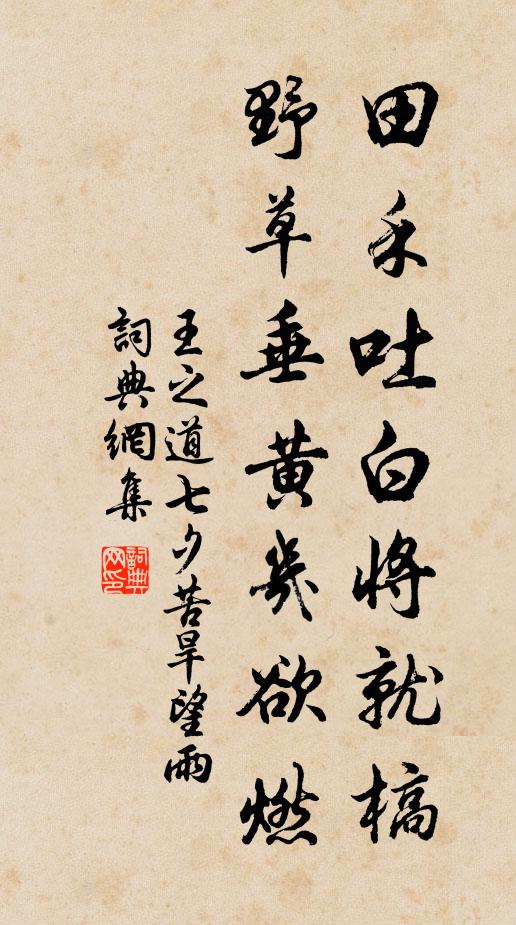 田禾吐白將就槁
野草垂黃幾欲燃
王之道七夕苦旱望雨
詞典網集
詞典网印